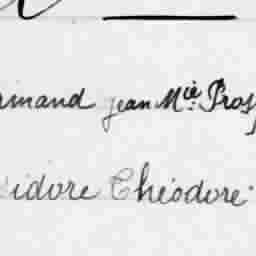 rmand jean Mie Pros
idore Théodore